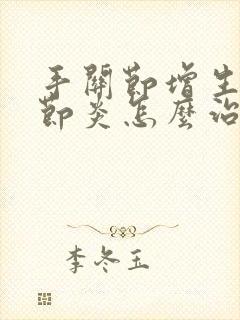 手關節增生
節炎怎麼治
李冬玉